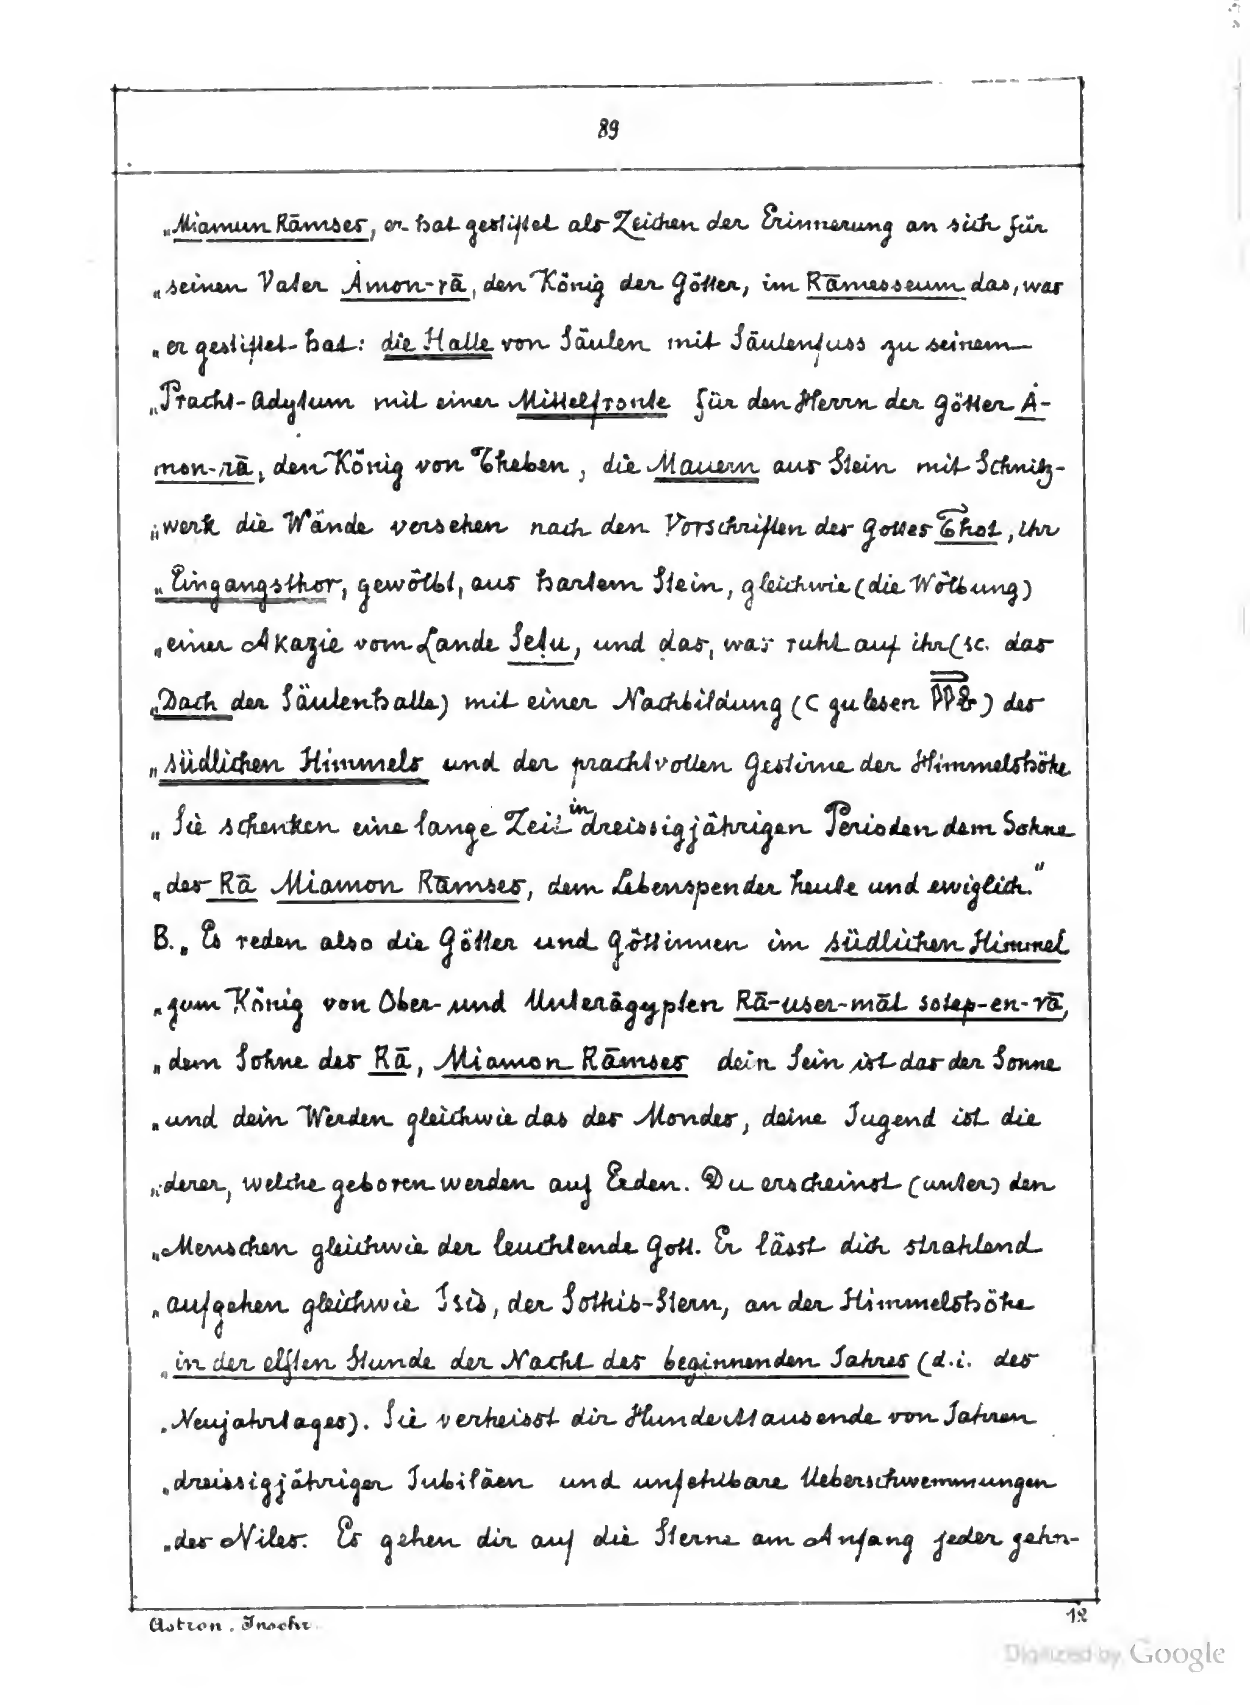 89
„Miamun Rāmses, er hat gestiftet als Zeichen der Erinnerung an sich für
„seinen Vater Ȧmon-rā, den König der Götter, im Rāmesseum das, was
„er gestiftet hat: die Halle von Säulen mit Säulenfuss zu seinem
„Pracht-Adytum mit einer Mittelfronte für den Herrn der Götter Ȧ-
mon-rā, den König von Theben, die Mauern aus Stein mit Schnitz-
„werk die Wände versehen nach den Vorschriften des Gottes Thot, ihr
„Eingangsthor, gewölbt, aus hartem Stein, gleichwie (die Wölbung)
„einer Akazie vom Lande Setu, und das, was ruht auf ihr (sc. das
„Dach der Säulenhalle) mit einer Nachbildung (C zu lesen) des
„südlichen Himmels und der prachtvollen Gestirne der Himmelshöhe
„Sie schenken eine lange Zeit in dreissigjährigen Perioden dem Sohne
„des Rā Miamon Rāmses, dem Lebenspender heute und ewiglich."
B. „Es reden also die Götter und Göttinnen im südlichen Himmel
„zum König von Ober- und Unterägypten Rā-user-māt sotep-en-rā,
„dem Sohne des Rā, Miamon Rāmses dein Sein ist das der Sonne
„und dein Werden gleichwie das des Mondes, deine Jugend ist die
„derer, welche geboren werden auf Erden. Du erscheinst (unter) den
„Menschen gleichwie der leuchtende Gott. Er lässt dich strahlend
„aufgehen gleichwie Isis, der Sothis-Stern, an der Himmelshöhe
„in der elften Stunde der Nacht des beginnenden Jahres (d.i. des
„Neujahrstages). Sie verheisst dir Hunderttausende von Jahren
„dreissigjähriger Jubiläen und unfehlbare Ueberschwemmungen
„des Niles. Es gehen dir auf die Sterne am Anfang jeder zehn-
Astron. Inschr.
12
Digitized by Google